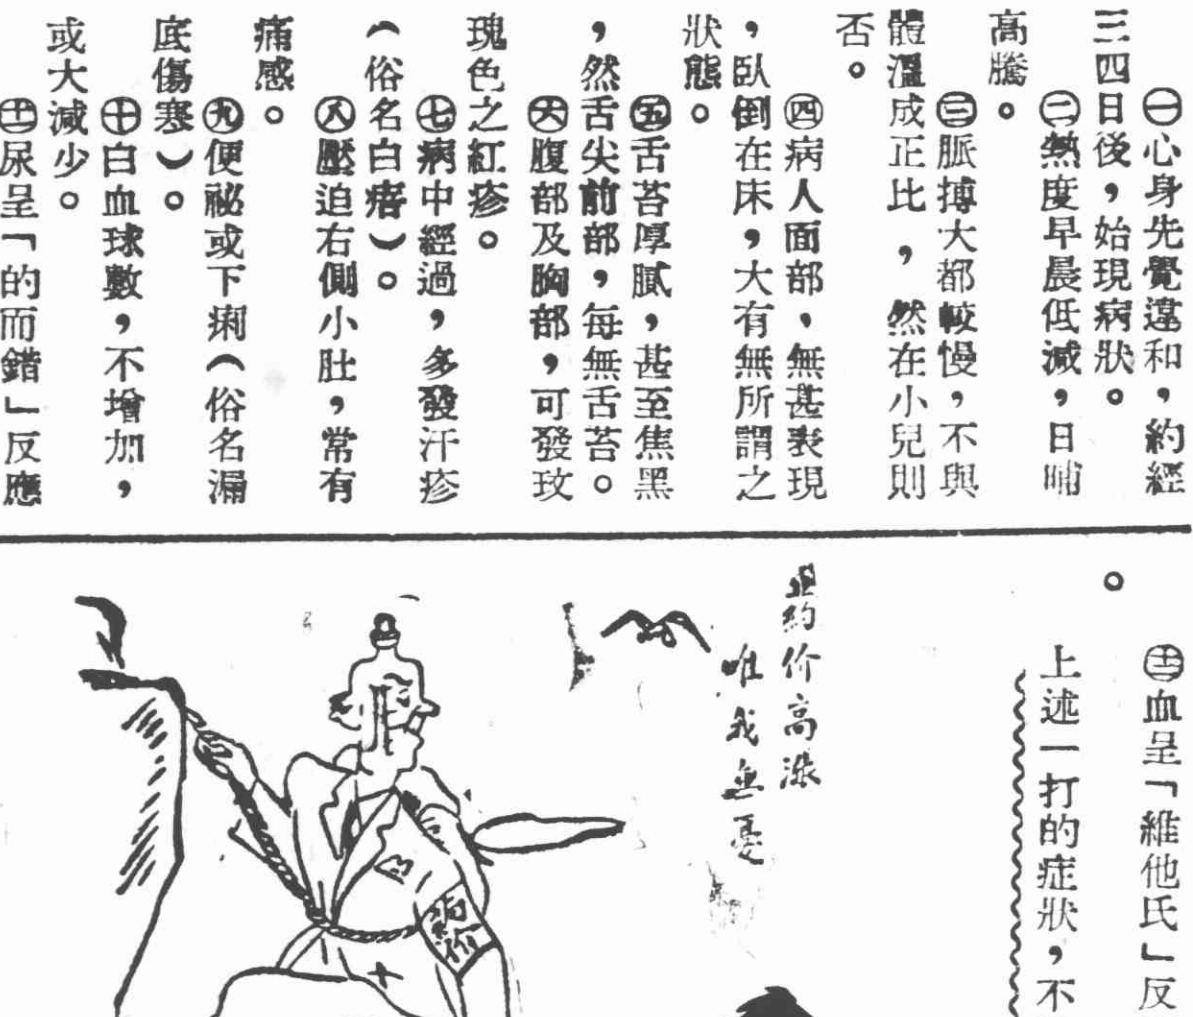 ㊀心身先覺違和，約經
三四日後，始現病狀。
㊁熱度早晨低減，日晡
高騰。
㊂脈搏大都較慢，不與
體溫成正比，然在小兒則
否。
㊃病人面部，無甚表現
，臥倒在床，大有無所謂之
狀態。
㊄舌苔厚膩，甚至焦黑
，然舌尖前部，每無舌苔。
㊅腹部及胸部，可發玫
瑰色之紅疹。
㊆病中經過，多發汗疹
（俗名白㾦）。
㊇壓迫右側小肚，常有
痛感。
㊈便祕或下痢（俗名漏
底傷寒）。
㊉白血球數，不增加，
或大減少。
尿呈「的而錯」反應
。
血呈「維他氏」反
上述一打的症狀，不
葯价高漲
唯我無憂
葯价